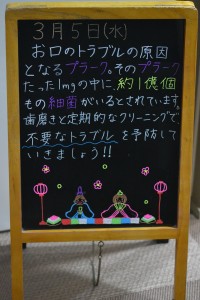 3月5日(水)
お口のトラブルの原因
となるプラーク。そのプラーク
たった1mgの中に、約1億個
もの細菌がいるとされています。
歯磨きと定期的なクリーニングで
不要なトラブルを予防して
いきましょう!!